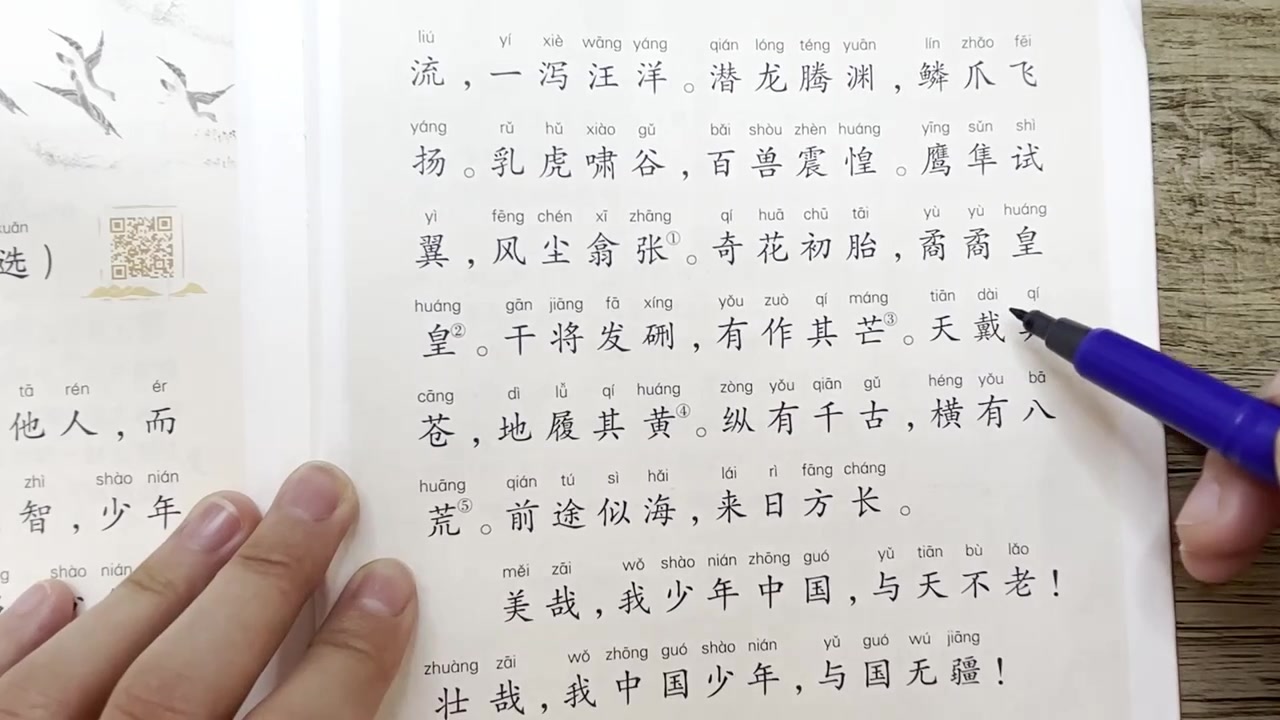 liú yí xiè wāng yáng qián lóng téng yuān lín zhǎo fēi
流，一泻汪洋。潜龙腾渊，鳞爪飞
yáng rǔ hǔ xiào gǔ bǎi shòu zhèn huáng yīng sǔn shì
扬。乳虎啸谷，百兽震惶。鹰隼试
yì fēng chén xī zhāng qí huā chū tāi yù yù huáng
翼，风尘翕张①。奇花初胎，矞矞皇
huáng gān jiāng fā xíng yǒu zuò qí máng tiān dài qí
皇②。干将发硎，有作其芒③。天戴
cāng dì lǚ qí huáng zòng yǒu qiān gǔ héng yǒu bā
苍，地履其黄④。纵有千古，横有八
huāng qián tú sì hǎi lái rì fāng cháng
荒⑤。前途似海，来日方长。
měi zāi wǒ shào nián zhōng guó yǔ tiān bù lǎo
美哉，我少年中国，与天不老！
zhuàng zāi wǒ zhōng guó shào nián yǔ guó wú jiāng
壮哉，我中国少年，与国无疆！
选）
tā rén ér
他人，而
zhì shào nián
智，少年
shào nián